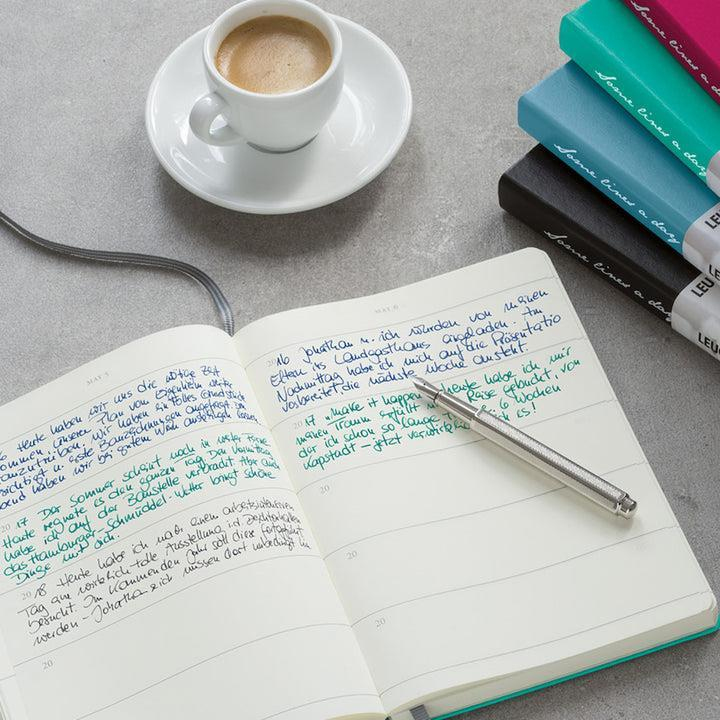 Some lines a day
Some lines a day
Some lines a day
Some lines a day
LEU
LEU
LEUC
MAY 5
Heute haben wir uns die nötige Zeit
genommen, unseren Plan vom Eigenheim weiter
voranzutreiben. Wir haben ein tolles Grundstück
besichtigt u. erste Bauzeichnungen angefragt. Den
Abend haben wir bei gutem Wein ausklingen lassen.
2017 Der Sommer scheint noch in weiter Ferne.
Heute regnete es den ganzen Tag. Den Vormittag
habe ich auf der Baustelle verbracht. Aber auch
das Hamburger-Schmuddel-Wetter bringt schöne
Dinge mit sich.
2018 Heute habe ich nach einem arbeitsintensiven
Tag eine wirklich tolle Ausstellung in
besucht. Im kommenden Jahr soll diese fortgeführt
werden - Jonathan & ich müssen dort unbedingt hin
20
MAY 6
2016 Jonathan u. ich wurden von meinen
Eltern ins Landgasthaus eingeladen. Am
Nachmittag habe ich mich auf die Präsentation
vorbereitet die nächste Woche ansteht.
2017 "Make it happen" - Heute habe ich mir
meinen Traum erfüllt u. die Reise gebucht, von
der ich schon so lange
Kapstadt - jetzt 6 Wochen
20
20
20